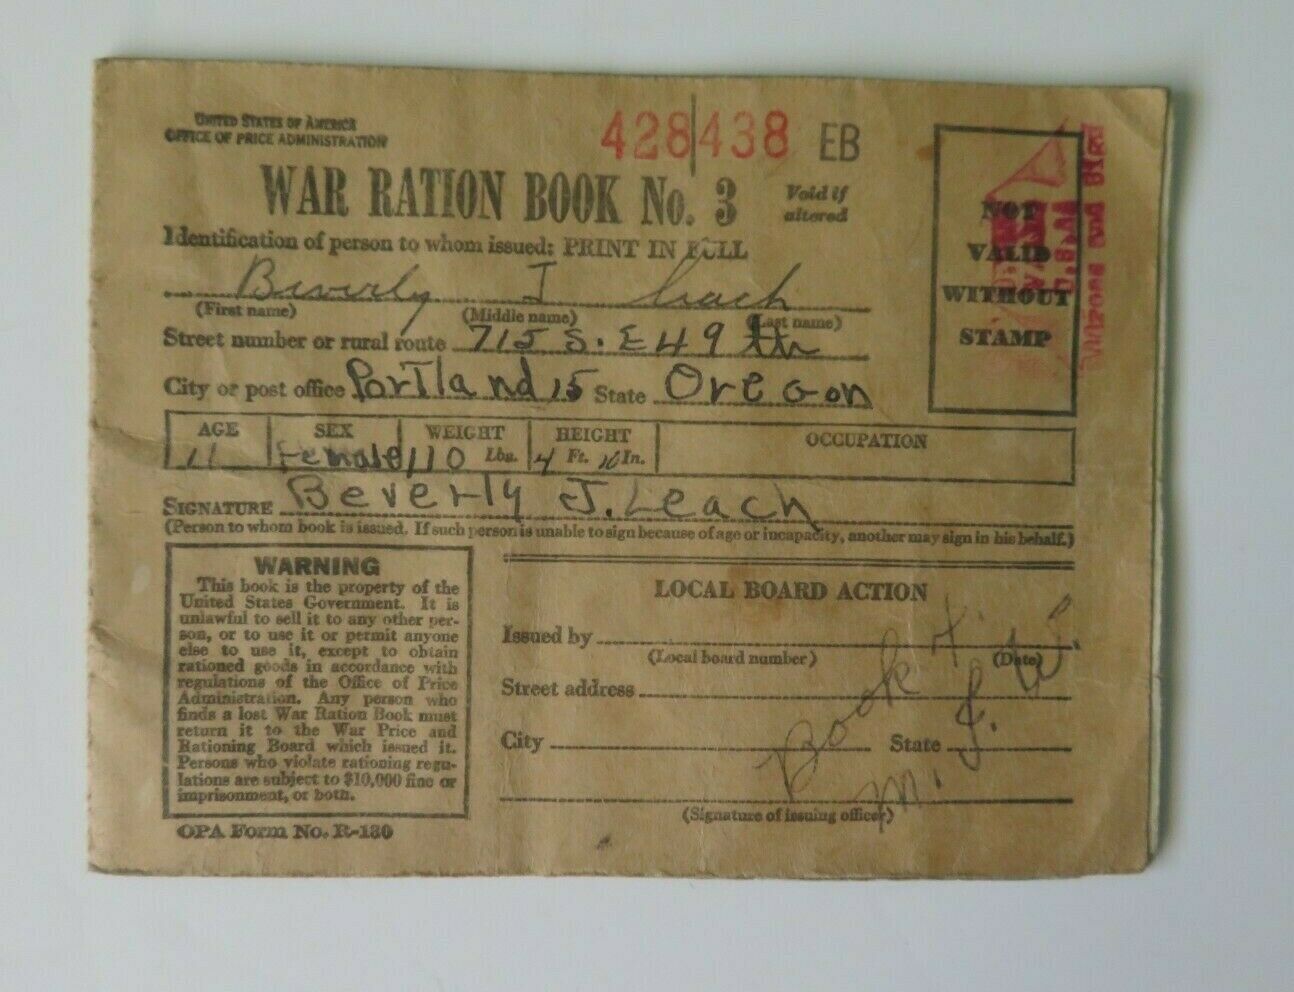 UNITED STATES OF AMERICA
OFFICE OF PRICE ADMINISTRATION
428438 EB
WAR RATION BOOK No. 3
Void if
altered
Identification of person to whom issued: PRINT IN FULL
Beverly J Leach
(First name) (Middle name) (Last name)
Street number or rural route 715 S. E 49 th
City or post office Portland 15 State Oregon
NOT
VALID
WITHOUT
STAMP
AGE SEX WEIGHT HEIGHT OCCUPATION
11 Female 110 Lbs. 4 Ft. 10 In.
SIGNATURE Beverly J. Leach
(Person to whom book is issued. If such person is unable to sign because of age or incapacity, another may sign in his behalf.)
WARNING
This book is the property of the
United States Government. It is
unlawful to sell it to any other per-
son, or to use it or permit anyone
else to use it, except to obtain
rationed goods in accordance with
regulations of the Office of Price
Administration. Any person who
finds a lost War Ration Book must
return it to the War Price and
Rationing Board which issued it.
Persons who violate rationing regu-
lations are subject to $10,000 fine or
imprisonment, or both.
OPA Form No. R-130
LOCAL BOARD ACTION
Issued by
(Local board number) (Date)
Street address
City State
(Signature of issuing officer)
Book